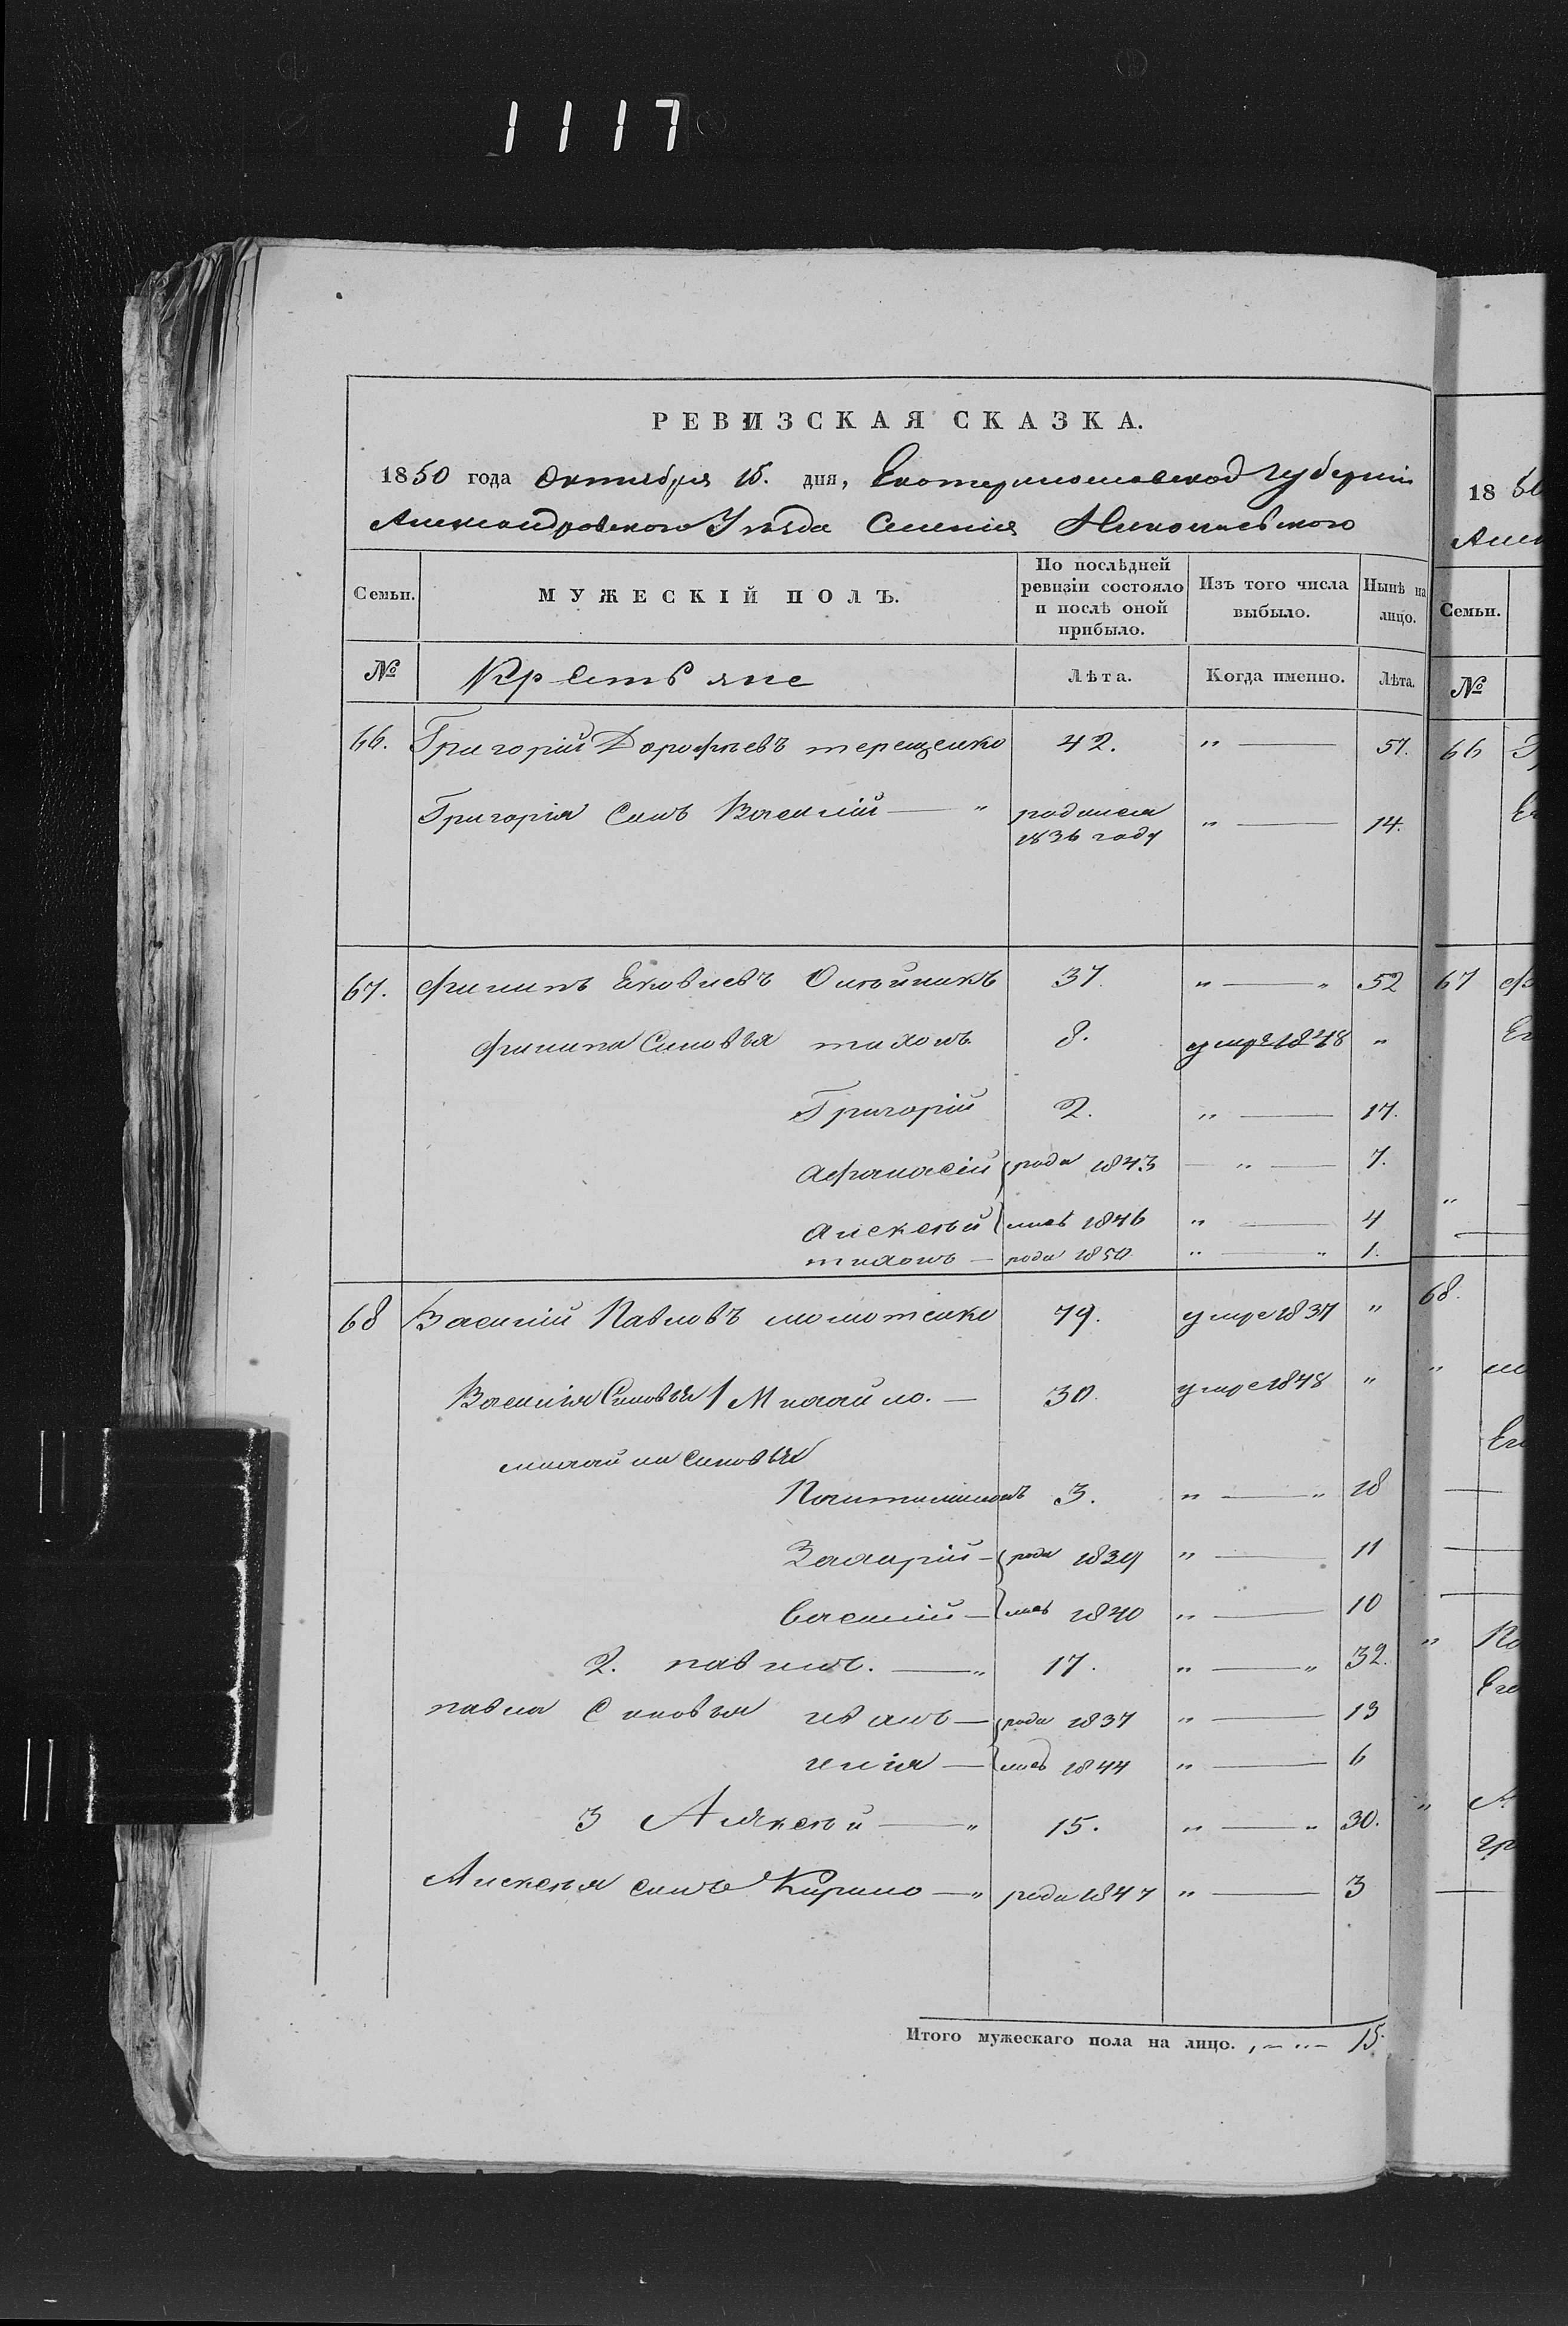 1117
РЕВИЗСКАЯ СКАЗКА.
1850 года Октября 15. дня, Екатеринославской Губерніи
Александровского Уѣзда Селенія Николаевского
Семьи. МУЖЕСКІЙ ПОЛЪ. По послѣдней ревизіи состояло и послѣ оной прибыло. Изъ того числа выбыло. Нынѣ на лицо.
№ Крестьяне Лѣта. Когда именно. Лѣта.
66. Григорій Дорофѣевъ терещенко 42. " — 57.
Григорія Синъ Василій — " родился 1836 году " — 14.
67. филипъ Яковлевъ Олѣйникъ 37. " — " 52
филипа Синовья тихонъ 8. умре 1848 "
Григорій 2. " — 17.
афанасій роди 1843 — " — 7.
алексѣй лись 1846 " — 4
тихонъ — роди 1850. " — " 1.
68 Василій Павловъ момотенко 79. умре 1837 "
Василія Синовья 1 Михайло. — 30. умре 1848 "
михайла синовья
Пантилимонъ 3. " — " 18
Захарій — роди 1839 " — 11
василій — лись 1840 " — 10
2. павилъ. — " 17. " — " 32.
павла Синовья иванъ — роди 1837 " — 13
илія — лись 1844 " — 6
3 Алексѣй — " 15. " — " 30.
Алексѣя синъ Кирило — " роди 1847 " — 3
Итого мужескаго пола на лицо. , — " — 15.
18
Семьи.
№
66
67
68.